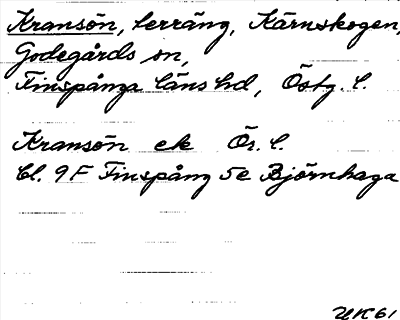 Kransön, terräng, Kärnskogen,
Godegårds sn,
Finspånga läns hd, Östg. l.
Kransön ek Ör. l.
Bl. 9F Finspång 5e Björnhaga
UK 61